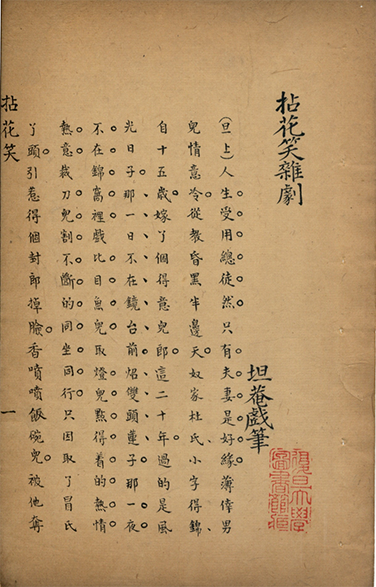 拈花笑雜劇
坦菴戲筆
復旦大學
圖書館藏
(旦上)人生受用總徒然只有夫妻是好緣薄倖男
兒情意冷從教昏黑半邊天奴家杜氏小字得錦
自十五歲嫁了個得意兒郎這二十年過的是風
光日子那一日不在鏡台前焰雙頭蓮子那一夜
不在錦窩裡戲比目魚兒取燈兒點得着的熱情
熱意裁刀兒割不斷的同坐同行只因取了冒氏
丫頭引惹得個封郎掉臉香噴噴飯碗兒被他奪
拈花笑
一